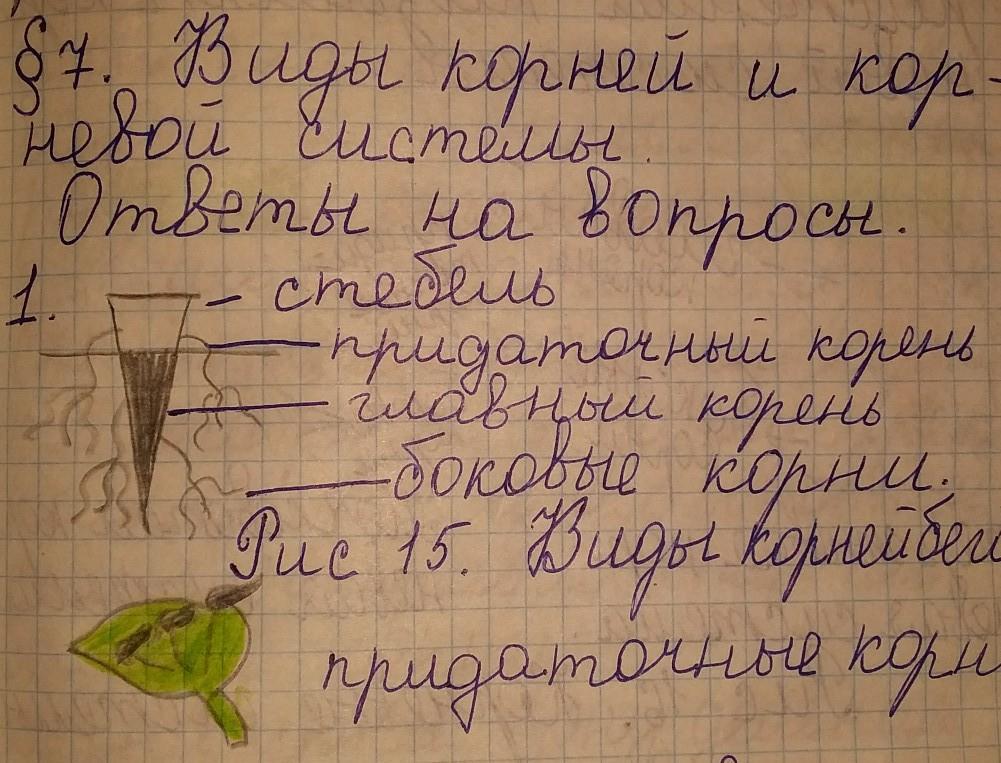 §7. Виды корней и кор-
невой системы.
Ответы на вопросы.
1. – стебель
придаточный корень
главный корень
боковые корни.
Рис 15. Виды корней
придаточные корн